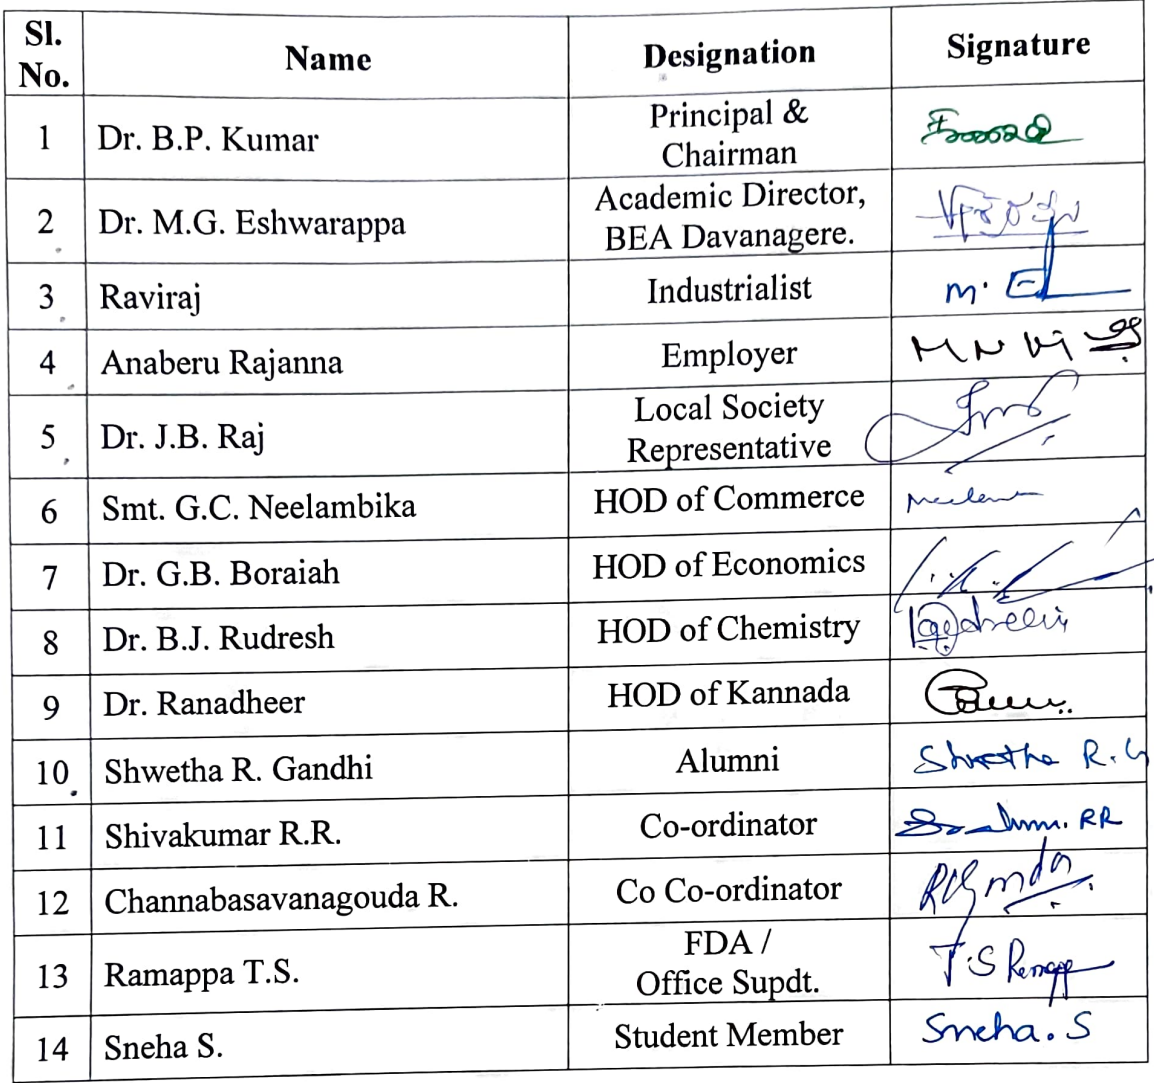 Sl. No. Name Designation Signature
1 Dr. B.P. Kumar Principal & Chairman
2 Dr. M.G. Eshwarappa Academic Director, BEA Davanagere.
3 Raviraj Industrialist
4 Anaberu Rajanna Employer
5 Dr. J.B. Raj Local Society Representative
6 Smt. G.C. Neelambika HOD of Commerce
7 Dr. G.B. Boraiah HOD of Economics
8 Dr. B.J. Rudresh HOD of Chemistry
9 Dr. Ranadheer HOD of Kannada
10 Shwetha R. Gandhi Alumni Shwetha R. G
11 Shivakumar R.R. Co-ordinator
12 Channabasavanagouda R. Co Co-ordinator
13 Ramappa T.S. FDA / Office Supdt.
14 Sneha S. Student Member Sneha. S